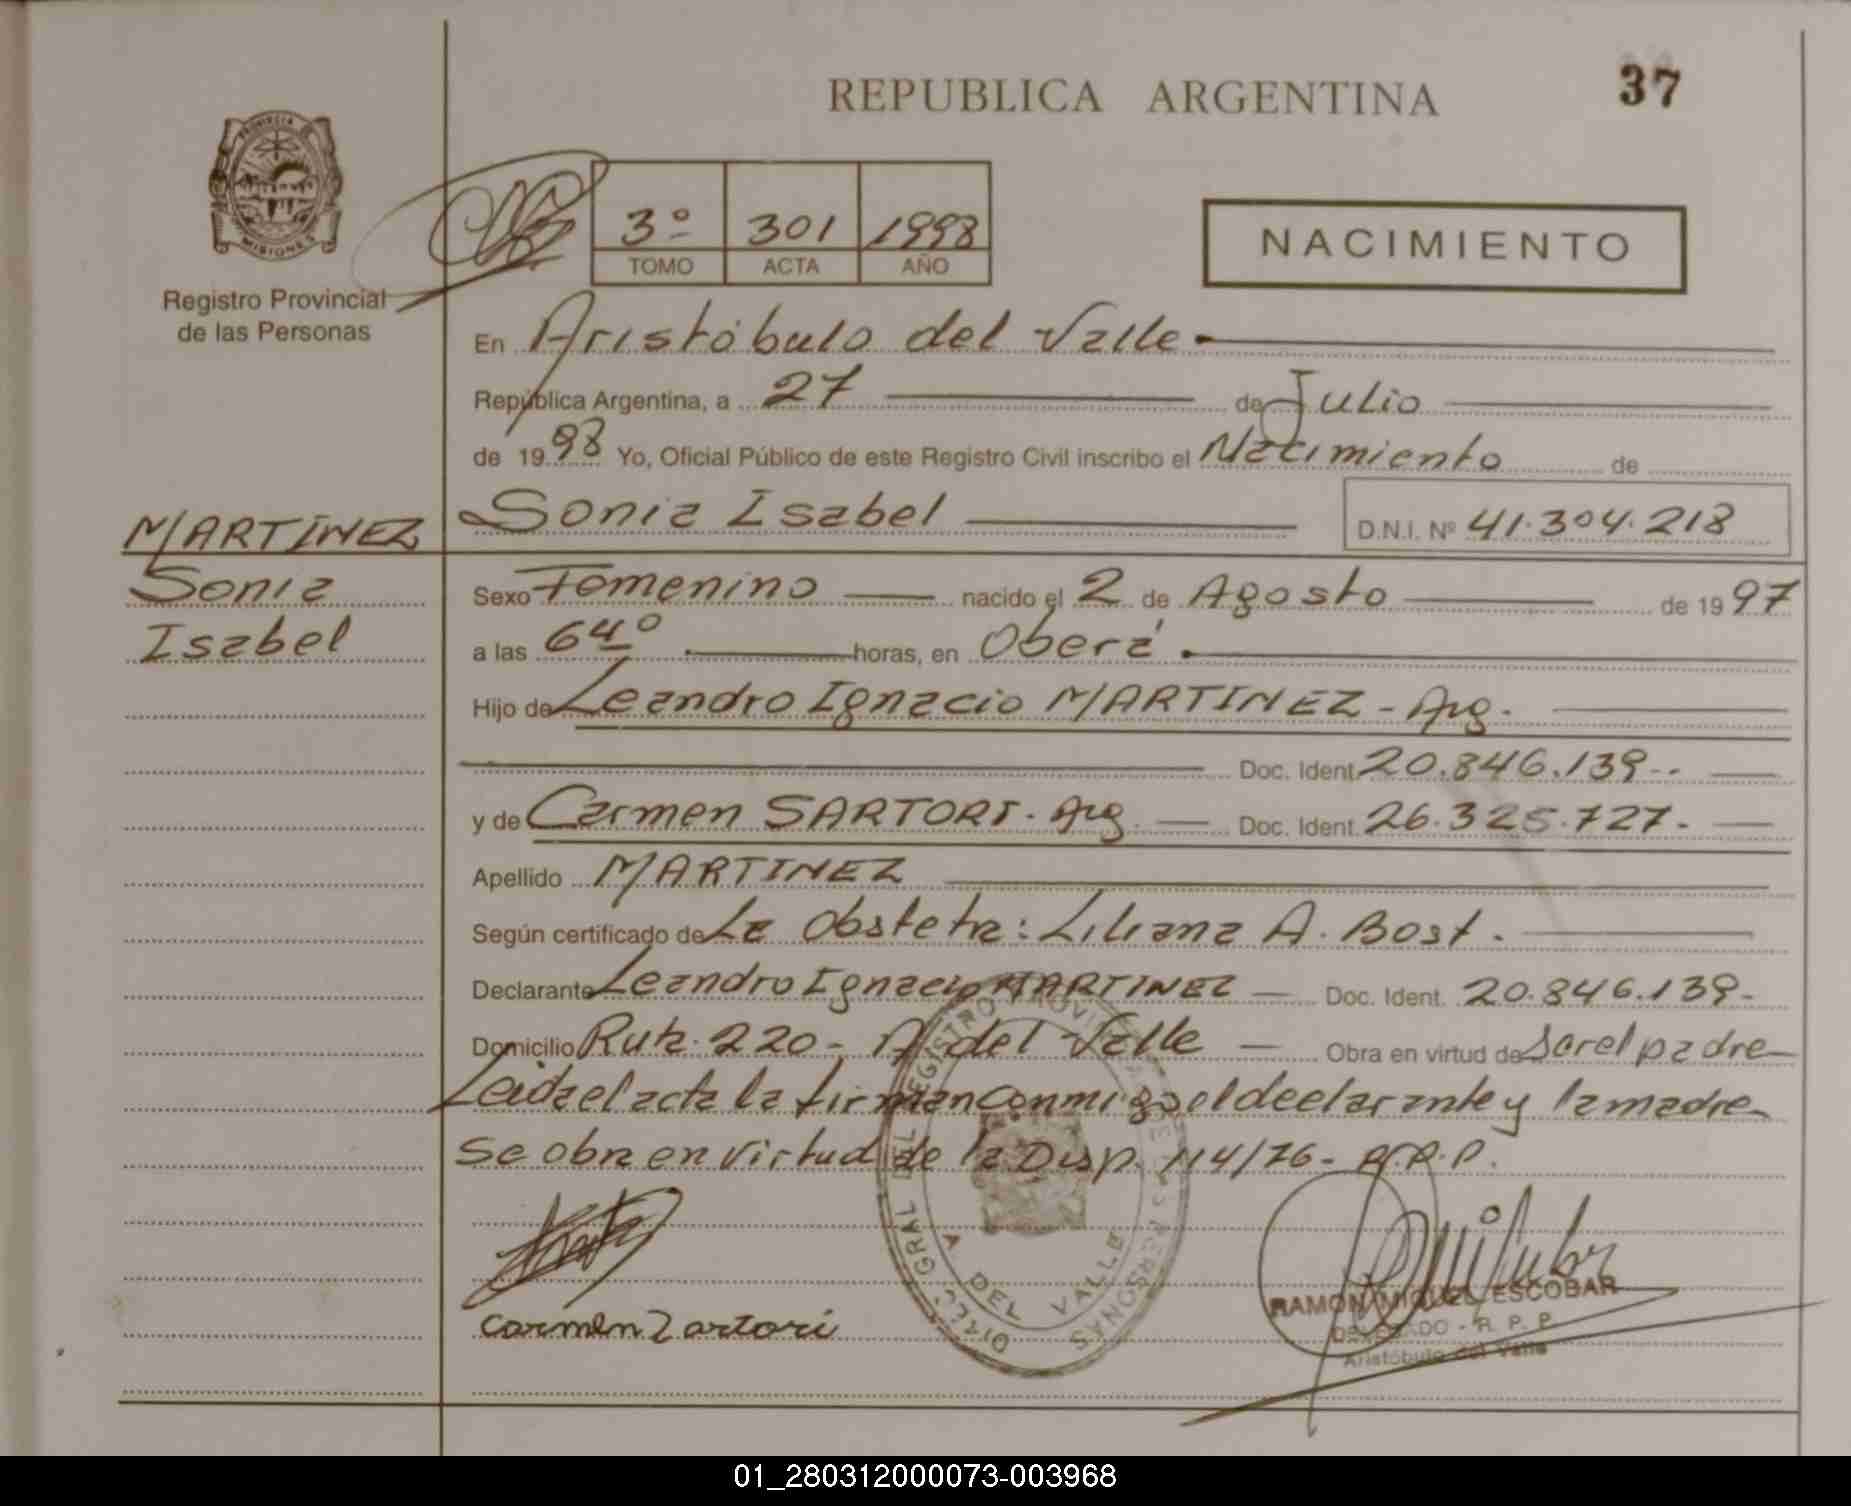 REPUBLICA ARGENTINA
37
PROVINCIA DE
MISIONES
Registro Provincial
de las Personas
3º 301 1998
TOMO ACTA AÑO
NACIMIENTO
En Aristóbulo del Valle
República Argentina, a 27 de Julio
de 1998 Yo, Oficial Público de este Registro Civil inscribo el Nacimiento de
Sonia Isabel D.N.I. Nº 41.304.218
MARTÍNEZ
Sonia
Isabel
Sexo Femenino nacido el 2 de Agosto de 1997
a las 6 4º horas, en Oberá.
Hijo de Leandro Ignacio MARTINEZ - Arg.
Doc. Ident. 20.846.139--
y de Carmen SARTORI. Arg. Doc. Ident. 26.325.727.
Apellido MARTINEZ
Según certificado de La Obstetra: Liliana A. Bost.
Declarante Leandro Ignacio MARTINEZ Doc. Ident. 20.846.139-
Domicilio Ruta 220 - A del Valle Obra en virtud de Ser el padre
Leida el acta la firman conmigo el declarante y la madre
Se obra en virtud de la Disp. 114/76-
Carmen Zartori
DIREC. GRAL DEL REGISTRO PROVINCIAL DE LAS PERSONAS
A DEL VALLE
RAMON MIGUEL ESCOBAR
DELEGADO - R. P. P.
Aristóbulo del Valle
01_280312000073-003968